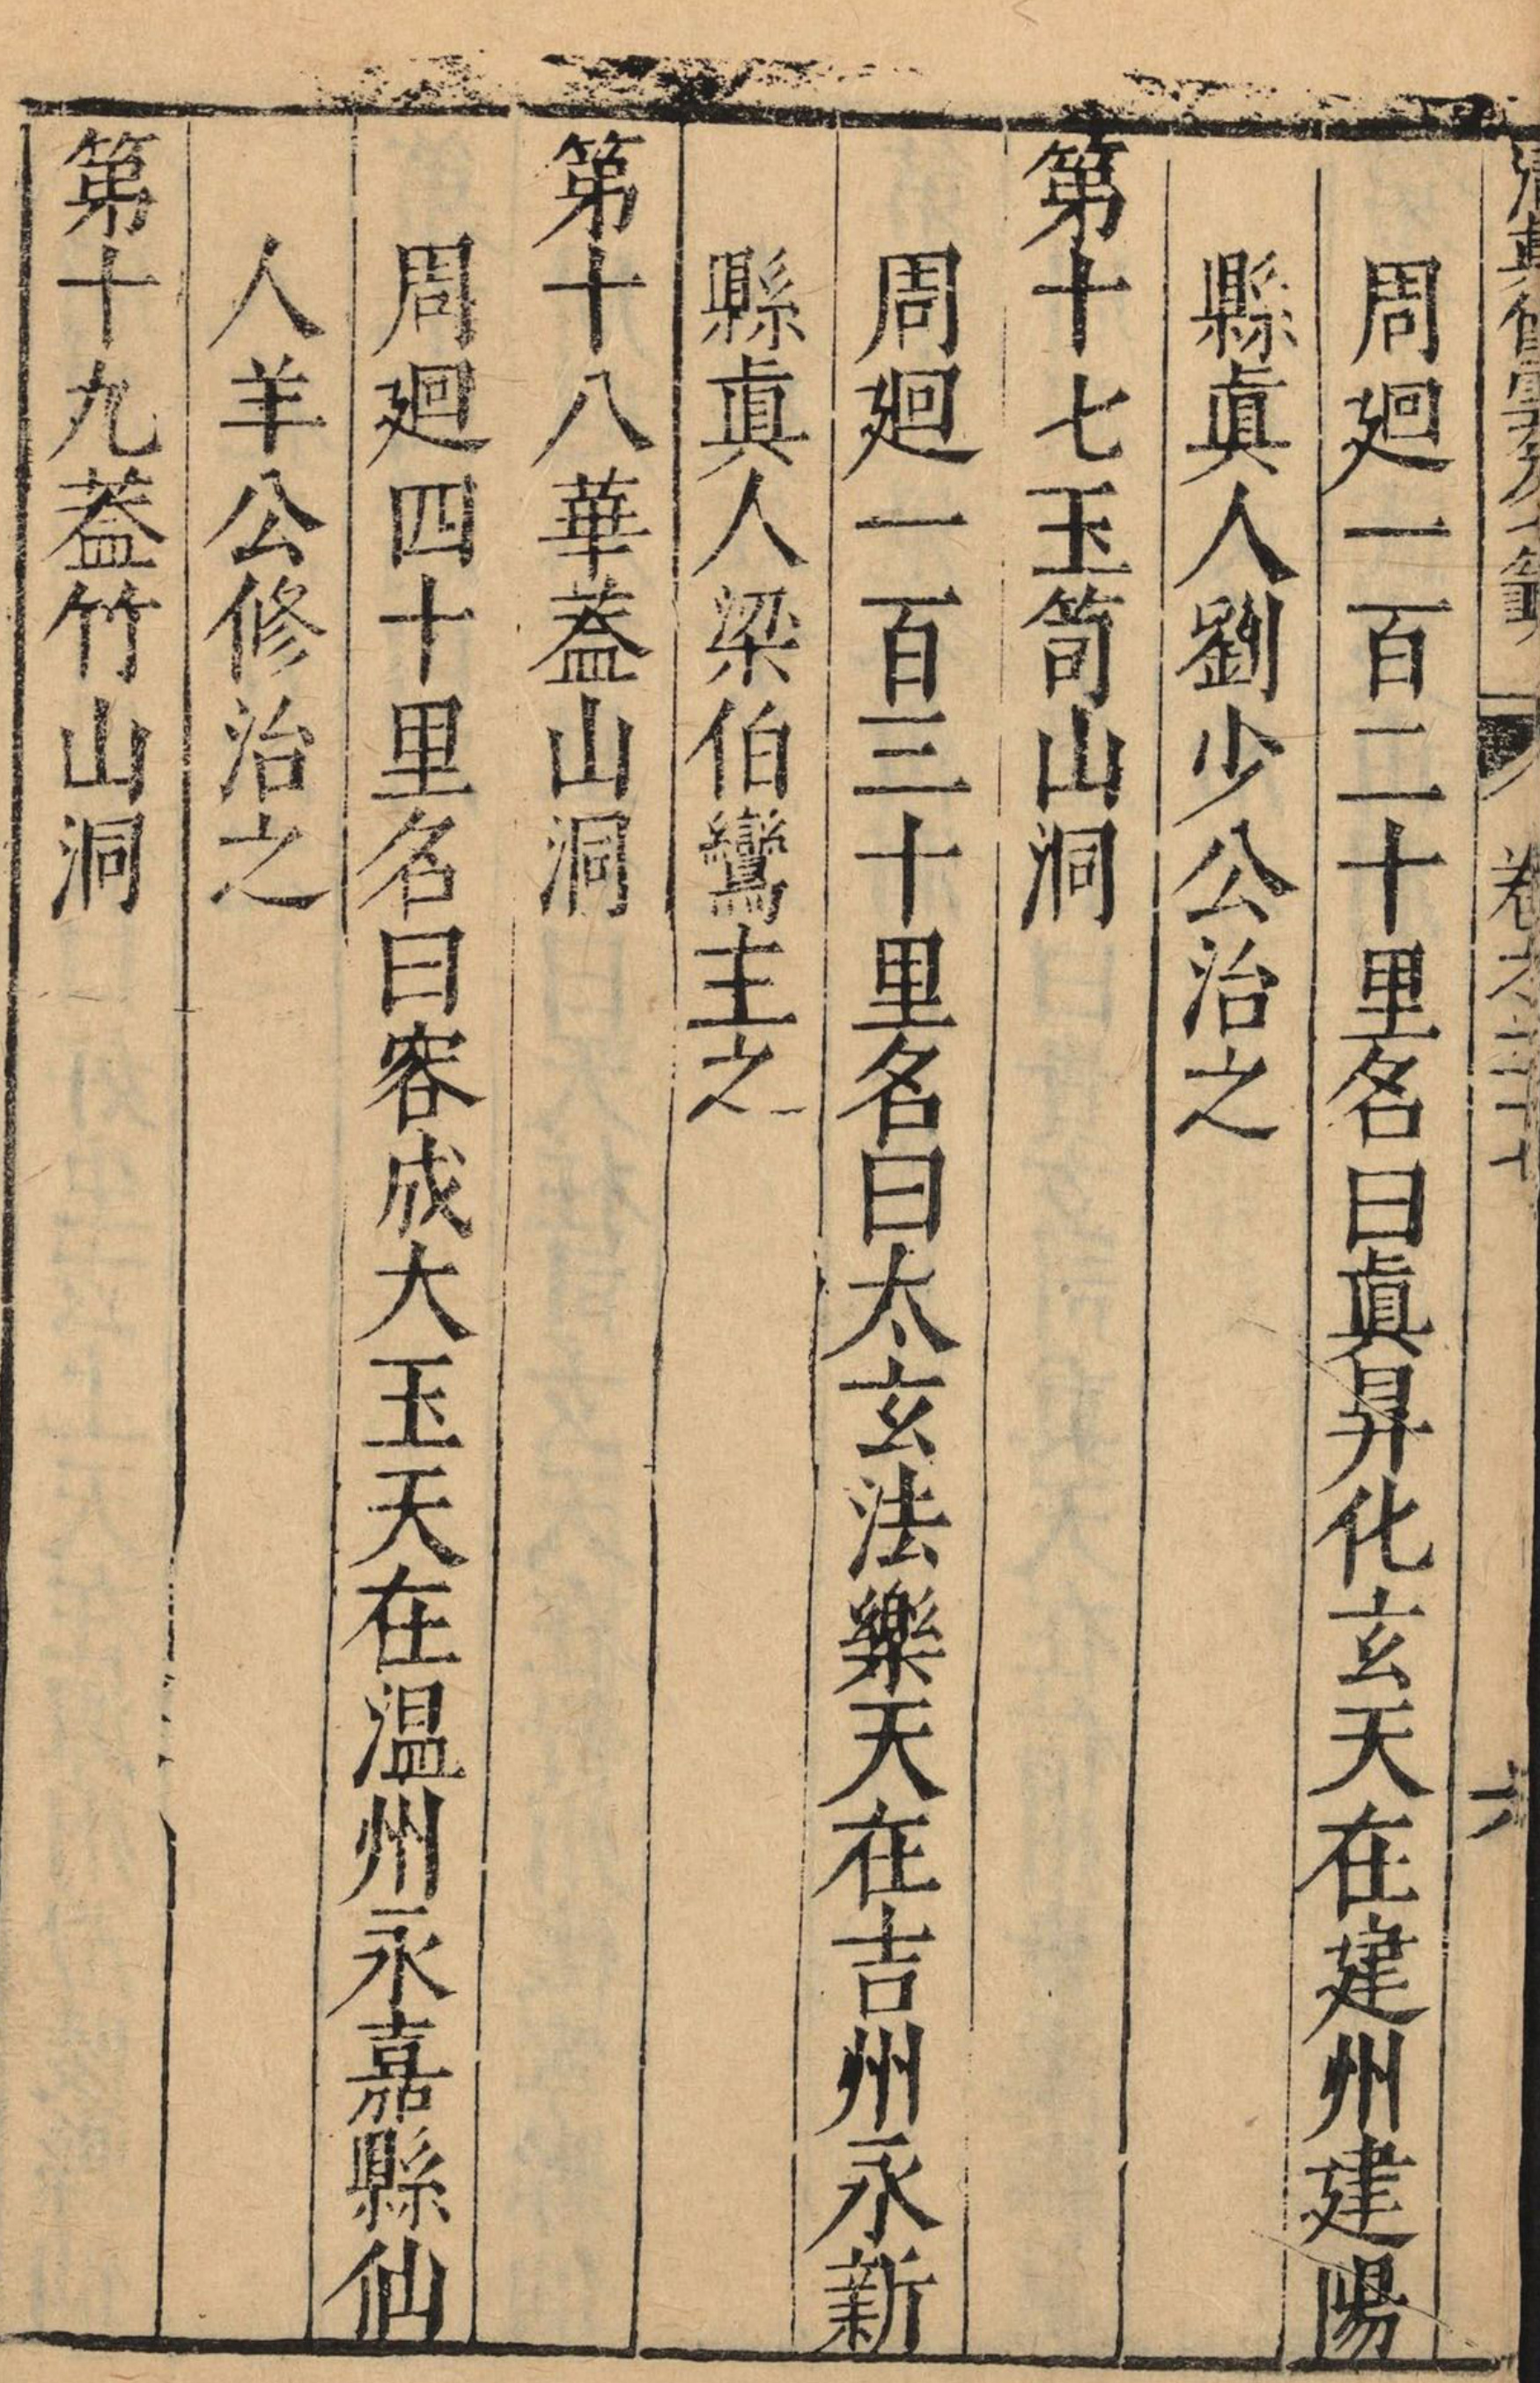 周廻一百二十里名曰眞昇化玄天在建州建陽
縣眞人劉少公治之
第十七玉笥山洞
周廻一百三十里名曰太玄法樂天在吉州永新
縣眞人梁伯鸞主之
第十八華葢山洞
周廻四十里名曰容成大玉天在温州永嘉縣仙
人羊公修治之
第十九葢竹山洞